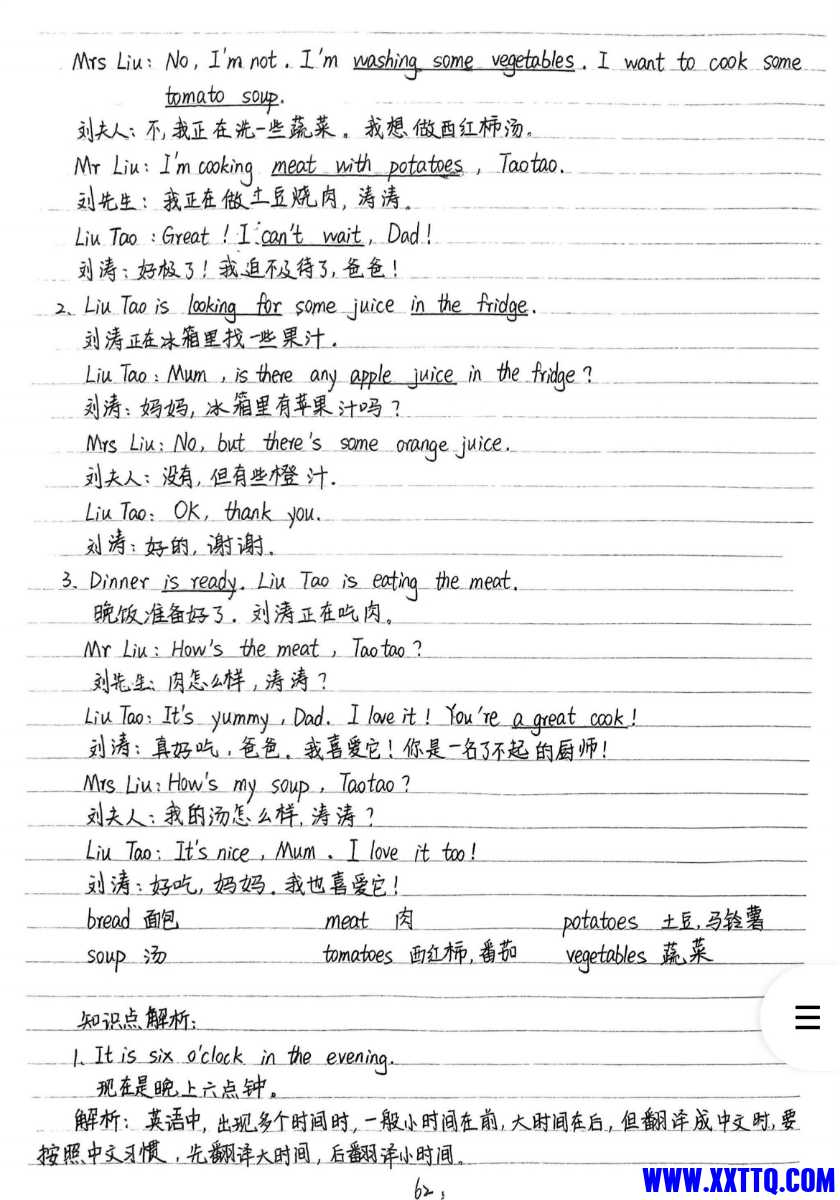 Mrs Liu: No, I'm not. I'm washing some vegetables. I want to cook some
tomato soup.
刘夫人:不,我正在洗一些蔬菜。我想做西红柿汤。
Mr Liu: I'm cooking meat with potatoes, Taotao.
刘先生:我正在做土豆烧肉,涛涛。
Liu Tao: Great! I can't wait, Dad!
刘涛:好极了!我迫不及待了,爸爸!
2、Liu Tao is looking for some juice in the fridge.
刘涛正在冰箱里找一些果汁.
Liu Tao: Mum, is there any apple juice in the fridge?
刘涛:妈妈,冰箱里有苹果汁吗?
Mrs Liu: No, but there's some orange juice.
刘夫人:没有,但有些橙汁.
Liu Tao: OK, thank you.
刘涛:好的,谢谢.
3、Dinner is ready. Liu Tao is eating the meat.
晚饭准备好了.刘涛正在吃肉。
Mr Liu: How's the meat, Taotao?
刘先生:肉怎么样,涛涛?
Liu Tao: It's yummy, Dad. I love it! You're a great cook!
刘涛:真好吃,爸爸.我喜爱它!你是一名了不起的厨师!
Mrs Liu: How's my soup, Taotao?
刘夫人:我的汤怎么样,涛涛?
Liu Tao: It's nice, Mum. I love it too!
刘涛:好吃,妈妈.我也喜爱它!
bread 面包 meat 肉 potatoes 土豆,马铃薯
soup 汤 tomatoes 西红柿,番茄 vegetables 蔬菜
知识点解析:
1、It is six o'clock in the evening.
现在是晚上六点钟。
解析:英语中,出现多个时间时,一般小时间在前,大时间在后,但翻译成中文时,要
按照中文习惯,先翻译大时间,后翻译小时间。
62
WWW.XXTTQ.COM